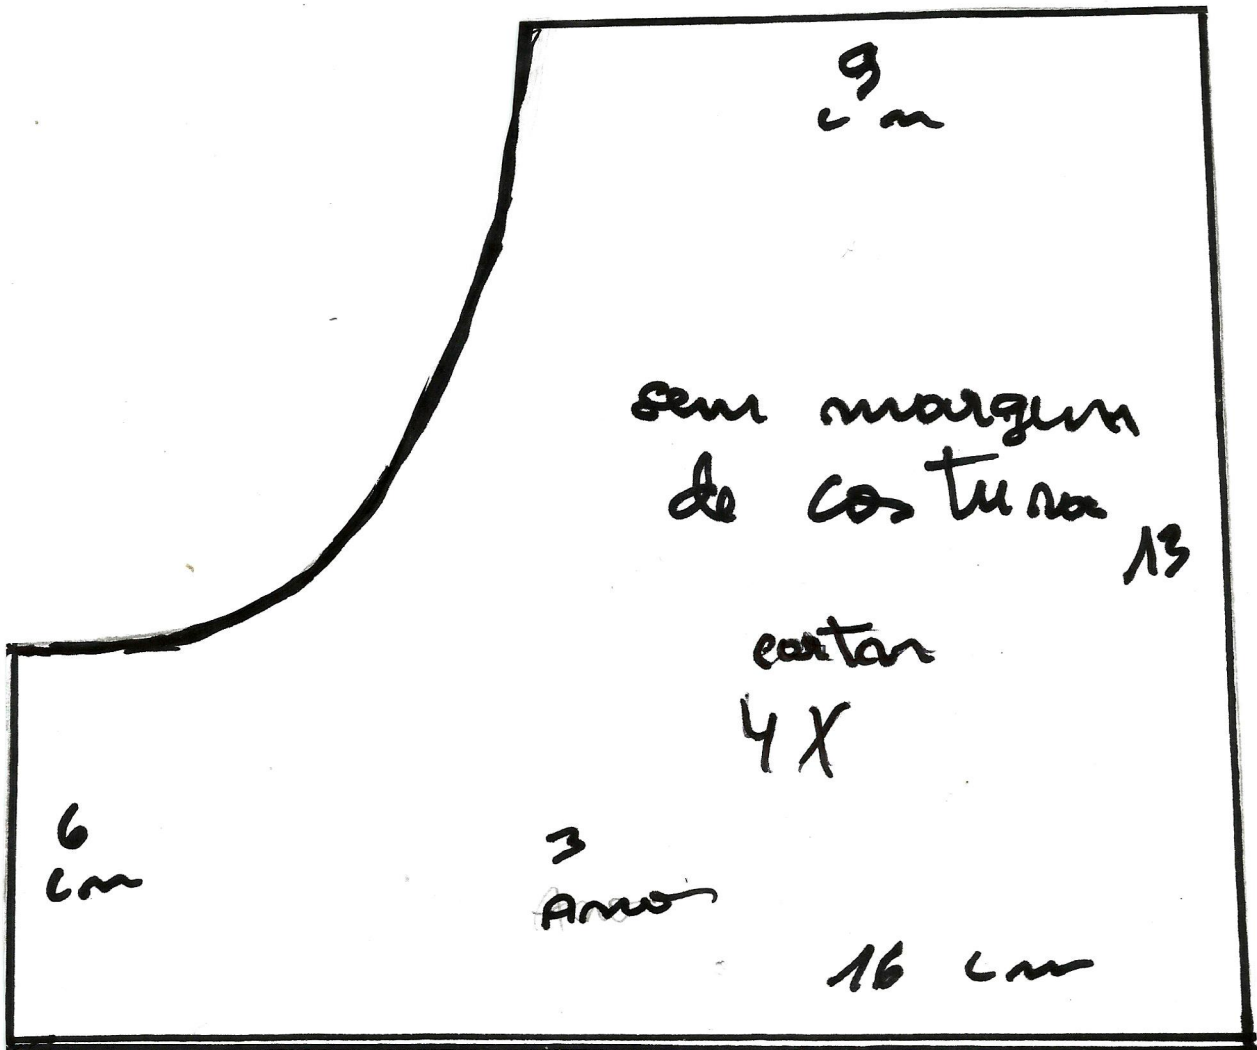 9
cm
sem margem
de costura
13
cortar
4 X
6
cm
3
Anos
16 cm